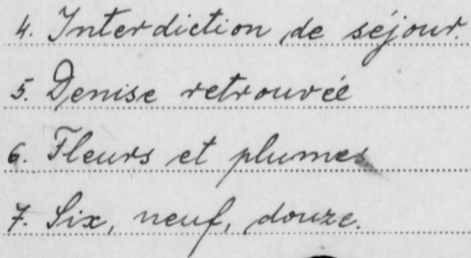 4. Interdiction de séjour.
5. Denise retrouvée
6. Fleurs et plumes
7. Six, neuf, douze.